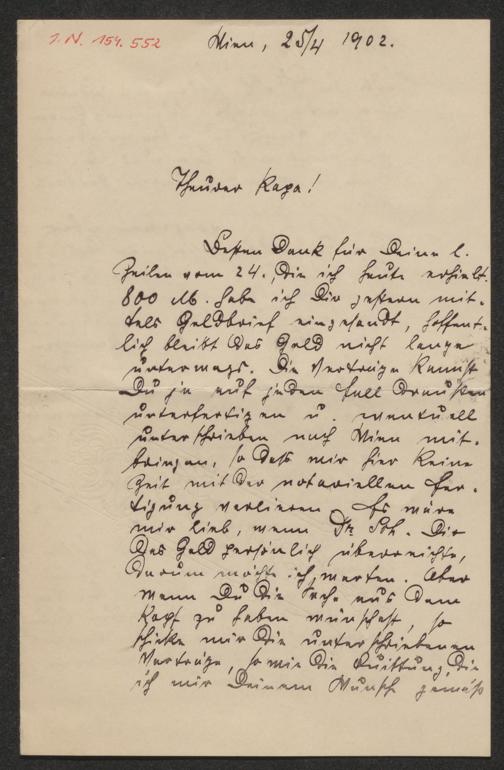 I. N. 154.552
Wien, 25/4 1902.
Theurer Papa!
Besten Dank für Deine l.
Zeilen vom 24., die ich heute erhielt.
800 M. habe ich Dir gestern mit-
tels Geldbrief eingesandt, hoffent-
lich bleibt das Geld nicht lange
unterwegs. Die Verträge kannst
Du ja auf jeden Fall draußen
unterfertigen u. eventuell
unterschrieben nach Wien mit-
bringen, so daß wir hier keine
Zeit mit der notariellen Fer-
tigung verlieren. Es wäre
mir lieb, wenn Dr. Sch. Dir
das Geld persönlich überreichte,
darum möchte ich warten. Aber
wenn Du die Sache aus dem
Kopf zu haben wünschest, so
schicke mir die unterschriebenen
Verträge, so wie die Quittung, die
ich mir Deinem Wunsch gemäß